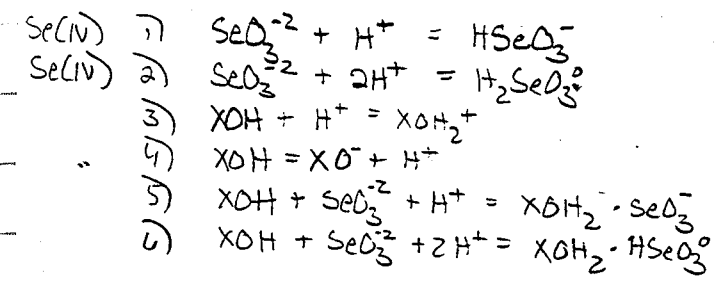 Se(IV) 1) SeO₃⁻² + H⁺ = HSeO₃⁻
Se(IV) 2) SeO₃⁻² + 2H⁺ = H₂SeO₃⁰
3) XOH + H⁺ = XOH₂⁺
" 4) XOH = XO⁻ + H⁺
5) XOH + SeO₃⁻² + H⁺ = XOH₂⁻ · SeO₃⁻
6) XOH + SeO₃⁻² + 2H⁺ = XOH₂ · HSeO₃⁰